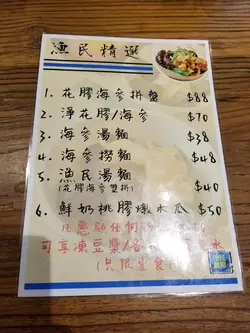 漁民精選
1. 花膠海參拼盤 $88
2. 淨花膠/海參 $70
3. 海參湯麵 $38
4. 海參撈麵 $48
5. 漁民湯麵 $40
(花膠海參雙拼)
6. 鮮奶桃膠燉木瓜 $50
凡惠顧任何
可享凍豆漿/各
(只限堂食)